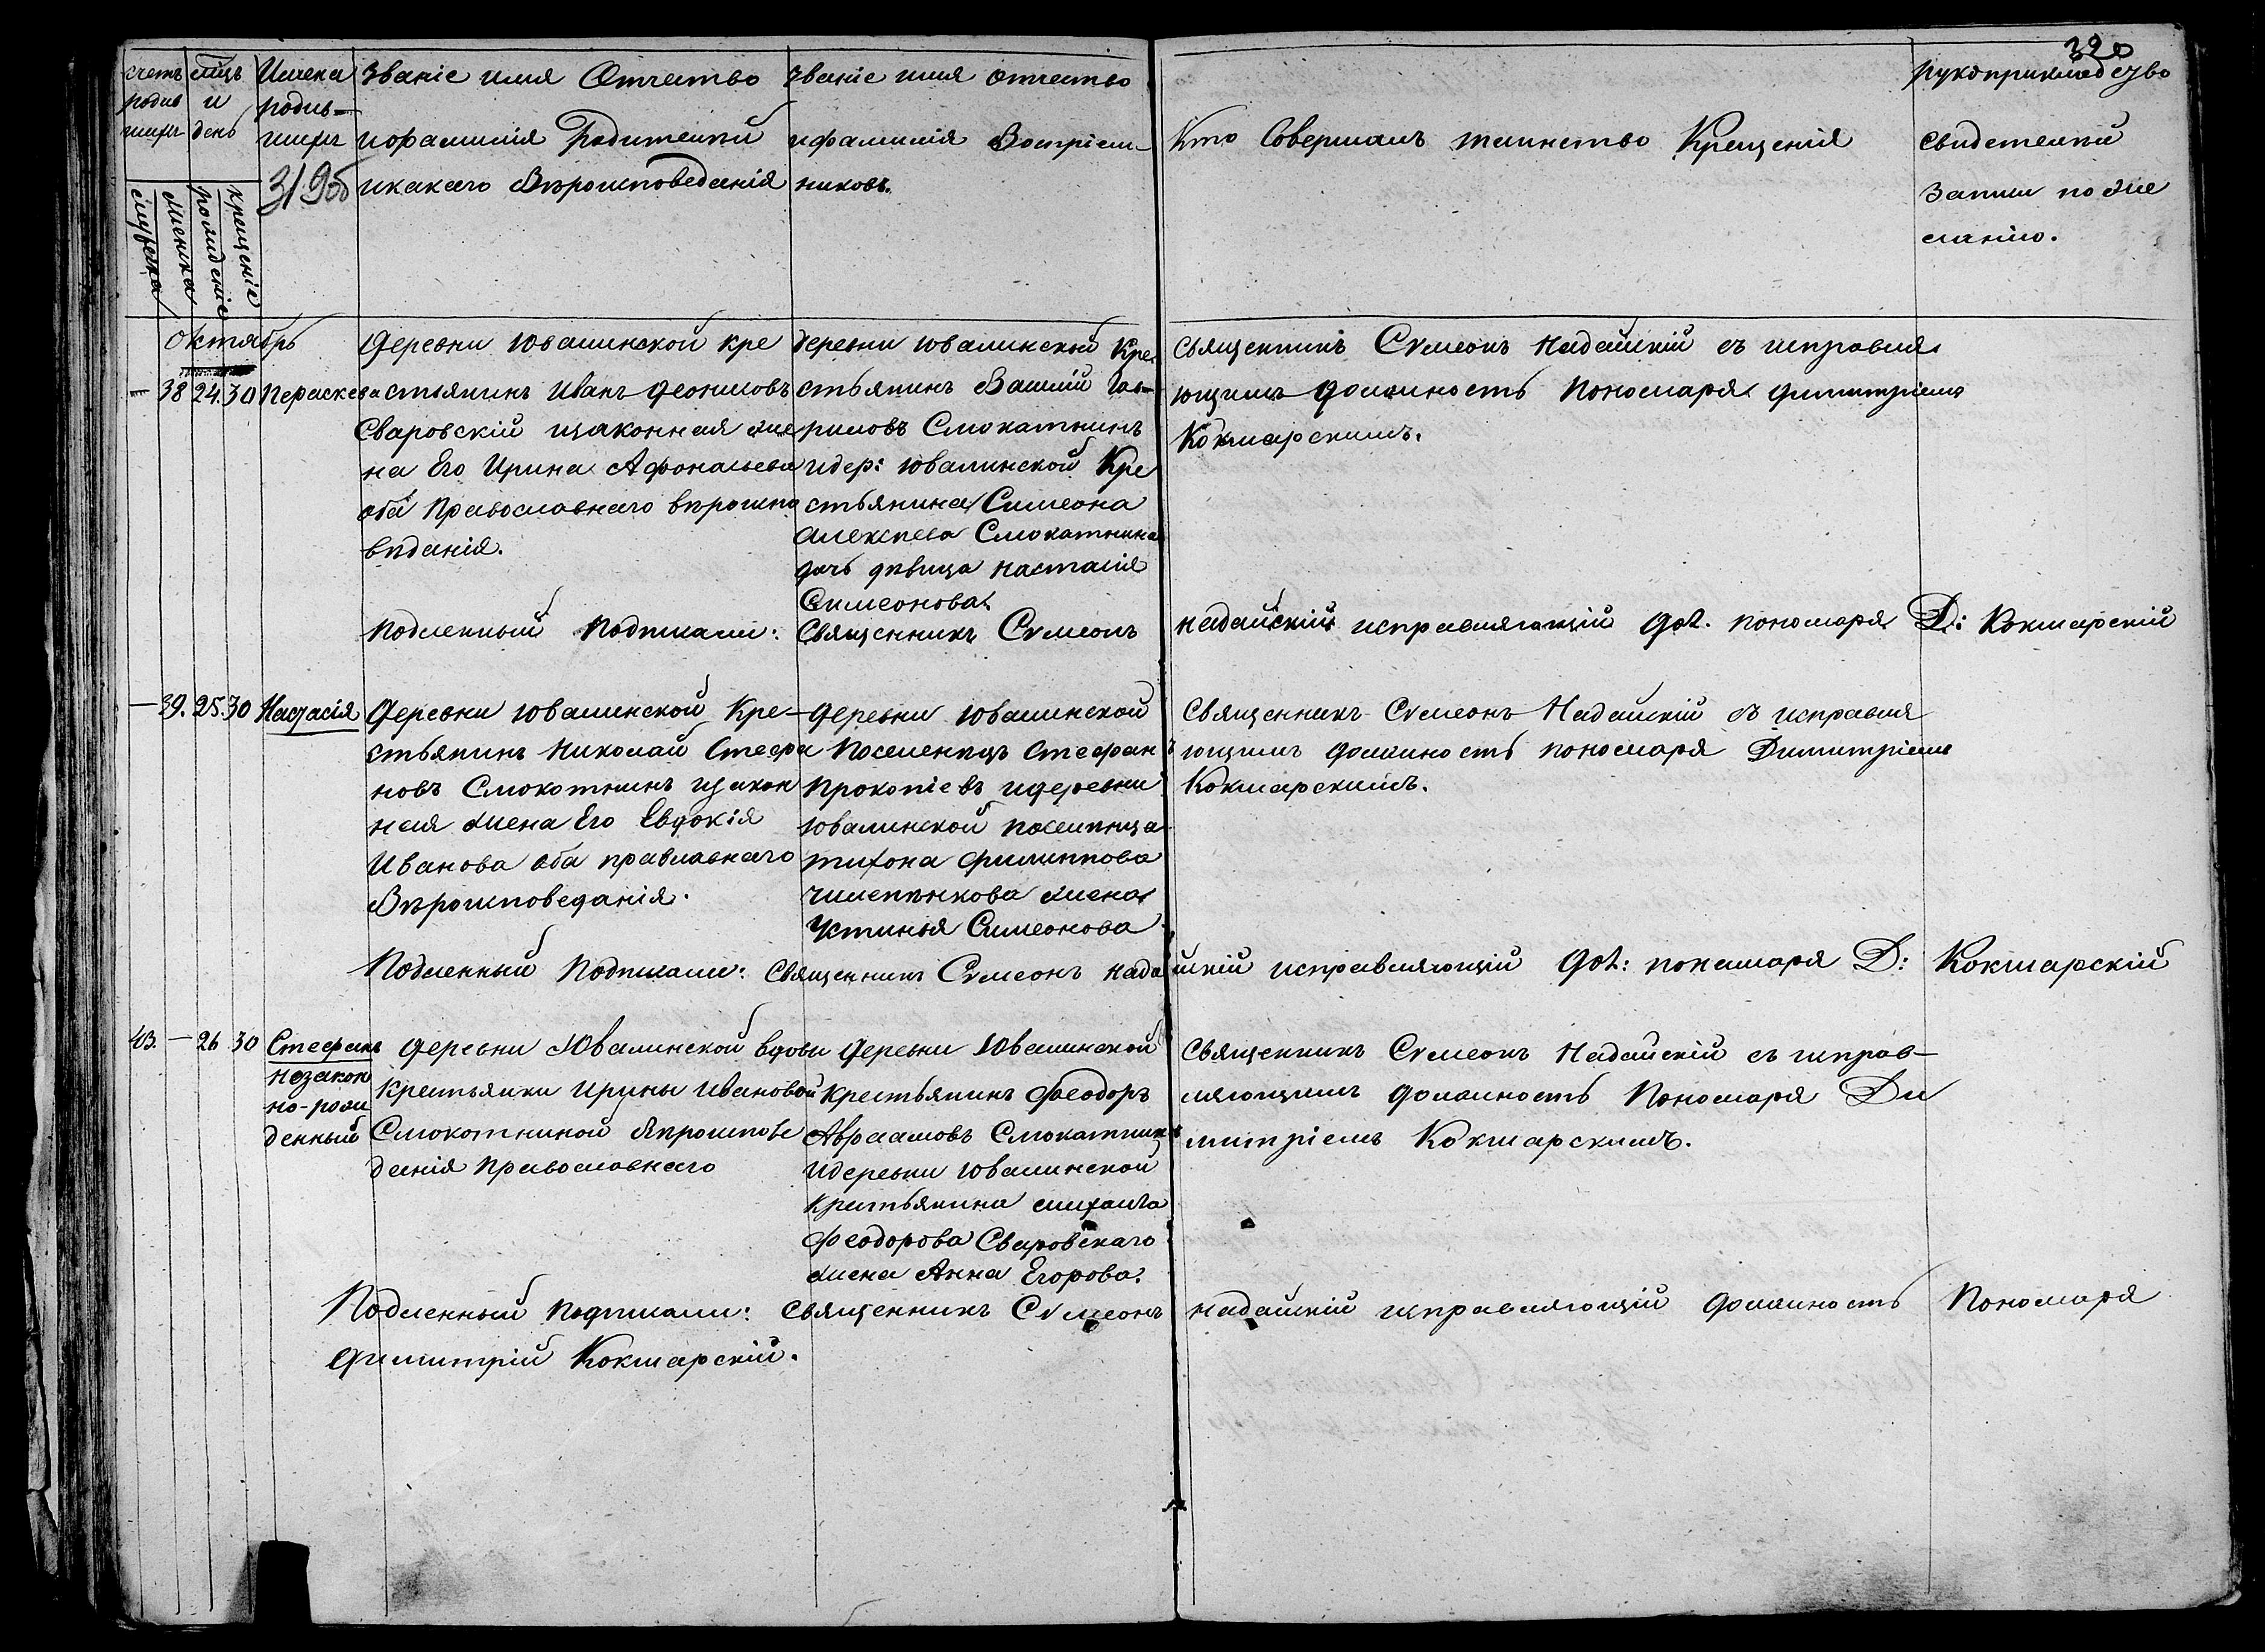 320
счетъ родив шихъ
мцъ и день
Имена родив- шихъ
319об
Званіе имя Отчество
и фамилія Родителей
и какаго Вѣроисповеданія
Званіе имя отчество
и фамилія Воспріем-
никовъ.
Кто Совершалъ таинство Крещенія
рукоприкладство
свидетелей
записи по же
ланію.
мужеска
женска
рожденіе
крещеніе
октябрь
– 38 24. 30 Пераскева
Деревни Ювалинской кре
стьянинъ Иванъ Леонидовъ
Сваровскій и законная же
на Его Ирина Афонасьева
оба Православнаго вѣроиспо
вѣданія.
деревни Ювалинской Кре
стьянинъ Василій Гав-
риловъ Смокатнинъ
и дер: Ювалинской Кре
стьянина Симеона
Алексѣева Смокатнина
дочь дѣвица Настасія
Симеонова.
Священникъ Сѵмеонъ Надайскій съ исправля
ющимъ должность Пономаря Димитріемъ
Кокшарскимъ.
Подленный Подписали: Священникъ Сѵмеонъ Надайскій исправляющій дол. пономаря Д: Кокшарскій
– 39. 25. 30 Настасія
Деревни Ювалинской Кре-
стьянинъ Николай Стефа
новъ Смокотнинъ и закон
ная жена Его Евдокія
Иванова оба православнаго
Вѣроисповеданія.
Деревни Ювалинской
Поселенецъ Стефанъ
Прокопіевъ и деревни
Ювалинской поселенца
Тихона Филиппова
жена
Устинья Симеонова
Священникъ Сѵмеонъ Надайскій съ исправля
ющимъ должность пономаря Димитріемъ
Кокшарскимъ.
Подленный Подписали: Священникъ Сѵмеонъ Надайскій исправляющій дол: понамаря Д: Кокшарскій
43. – 26 30 Стефанъ
незакон
но-рож
денный
Деревни Ювалинской вдовы
Крестьянки Ирины Ивановой
Смокотниной Вѣроиспове
данія Православнаго
Деревни Ювалинской
Крестьянинъ Феодоръ
Авраамовъ Смокатнинъ
и деревни Ювалинской
Крестьянина Михаила
Феодорова Сваровскаго
жена Анна Егорова.
Священникъ Сѵмеонъ Надайскій съ исправ-
ляющимъ должность Пономаря Ди
митріемъ Кокшарскимъ.
Подленный подписали: Священникъ Сѵмеонъ Надайскій исправляющій должность Пономаря
Димитрій Кокшарскій.